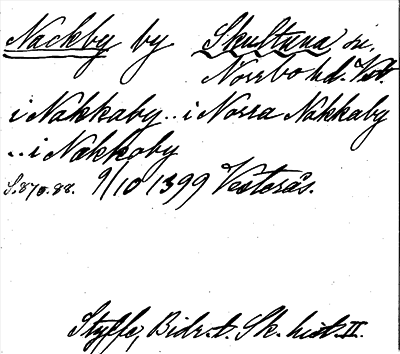 Nackby by Skultuna sn,
Norrbo hd. Vst.
i Nakkaby .. i Norra Nakkaby
.. i Nakkoby
9/10 1399 Vesterås.
Styffe, Bidr. t. Sk. hist. II.